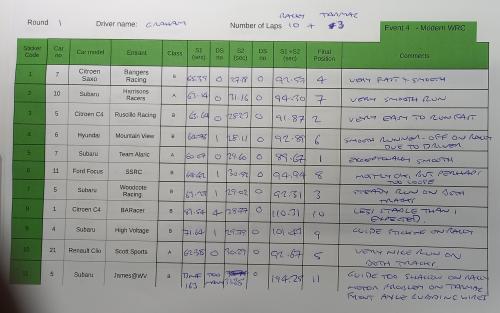 RALLY TARMAC
Round 1 Driver name: GRAHAM Number of Laps 10 + 3
Event 4 - Modern WRC
Sticker Code Car no Car model Entrant Class S1 (sec) DS no S2 (sec) DS no S1 +S2 (sec) Final Position Comments
1 7 Citroen Saxo Bangers Racing B 0 0 92.57 4 VERY FAST & SMOOTH
2 10 Subaru Harrisons Racers A 63.14 0 31.16 0 94.30 7 VERY SMOOTH RUN
3 5 Citroen C4 Ruscillo Racing B 63.60 0 28.27 0 91.87 2 VERY EASY TO RUN FAST
4 6 Hyundai Mountain View B 1 28.11 0 92.89 6 SMOOTH RUNNER - OFF ON RALLY
DUE TO DRIVER
5 7 Subaru Team Alaric A 60.07 0 29.60 0 89.67 1 EXCEPTIONALLY SMOOTH
6 11 Ford Focus SSRC B 1 0 94.94 8 MOSTLY OK, BUT PERHAPS
TOO LOOSE
7 5 Subaru Woodcote Racing B 1 29.02 0 92.31 3 STEADY RUN ON BOTH
TRACKS
8 1 Citroen C4 BARacer B 81.54 4 28.77 0 110.31 10 LESS STABLE THAN I
EXPECTED.
9 4 Subaru High Voltage B 71.64 1 0 9 GUIDE STICKING ON RALLY
10 21 Renault Clio Scott Sports A 62.38 0 30.29 0 92.67 5 VERY NICE RUN ON
BOTH TRACKS
11 5 Subaru James@WV B TIME 163 TOO MANY 0 194.25 11 GUIDE TOO SHALLOW ON RALLY
MOTOR PROBLEM ON TARMAC
FRONT AXLE RUBBING WIRES